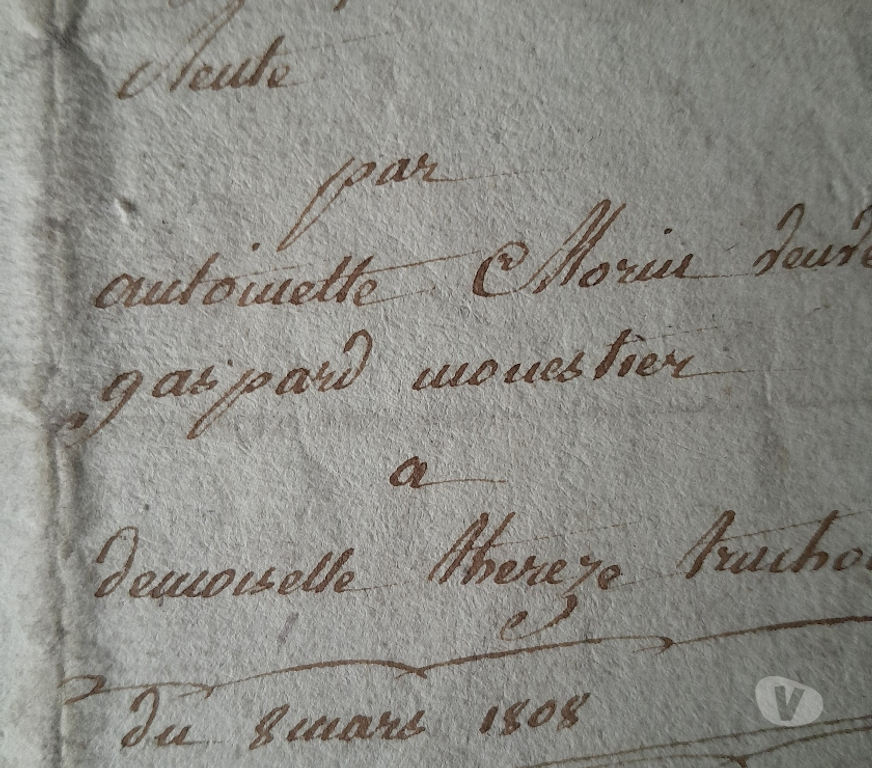 Vente
par
antoinette Morin veuve
gaspard monestier
a
demoiselle thereze trucho
du 8 mars 1808
V